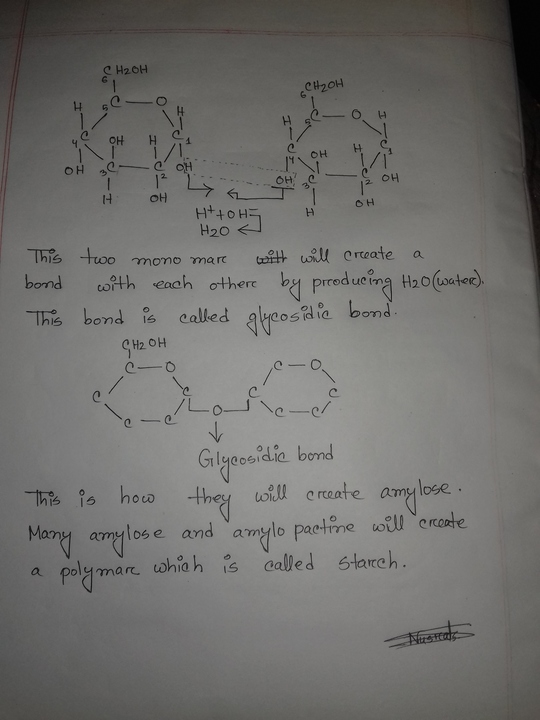 CH2OH
6
5 C — O
H H
4 C C 1
OH H
OH 3 C — C 2 OH
H OH
CH2OH
6
5 C — O
H H
C C 1
4 OH H
OH 3 C — C 2 OH
H OH
H+ + OH-
H2O
This two mono marc will create a
bond with each otherc by prcoducing H2O (waterc).
This bond is called glycosidic bond.
CH2OH
C — O C — O
C C C C
C — C O C — C
Glycosidic bond
This is how they will create amylose.
Many amylose and amylo pactine will create
a polymarc which is called starch.